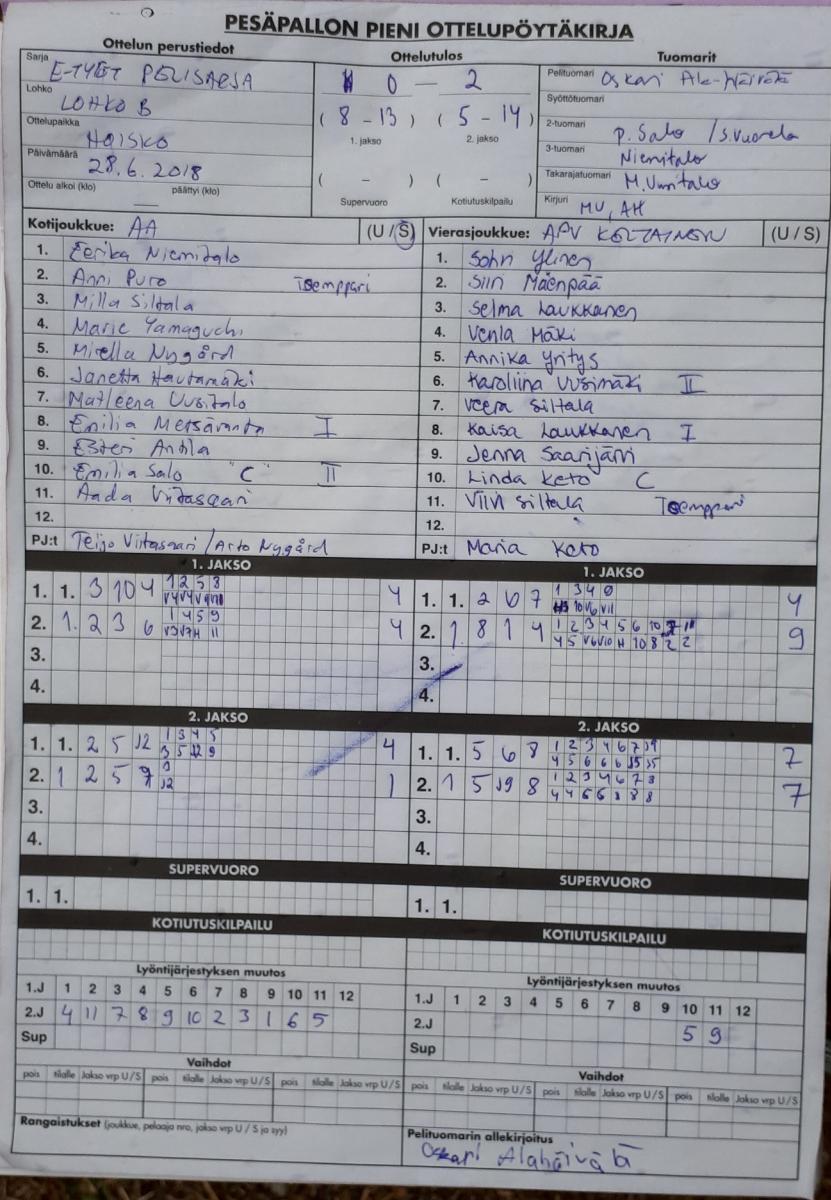 PESÄPALLON PIENI OTTELUPÖYTÄKIRJA
Ottelun perustiedot
Ottelutulos
Tuomarit
Sarja
E-TYTÖT PELISARJA
Lohko
LOHKO B
Ottelupaikka
HOISKO
Päivämäärä
28.6.2018
Ottelu alkoi (klo) päättyi (klo)
0 — 2
( 8 - 13 ) ( 5 - 14 )
1. jakso 2. jakso
( – ) ( – )
Supervuoro Kotiutuskilpailu
Pelituomari Oskari
Syöttötuomari
2-tuomari P. Salo / S. Vuorela
3-tuomari Niemitalo
Takarajatuomari M. Uusitalo
Kirjuri MU, AH
Kotijoukkue: AA (U / S)
1. Eerika Niemitalo
2. Anni Puro Tsemppari
3. Milla Siltala
4. Marie Yamaguchi
5. Mirella Nygård
6. Janetta Hautamäki
7. Matleena Uusitalo
8. Emilia Metsäranta I
9. Esteri Anttila
10. Emilia Salo "C" II
11. Aada Viitasaari
12.
PJ:t Teijo Viitasaari / Arto Nygård
Vierasjoukkue: APV KELTAINEN (U / S)
1. Sohvi Ylinen
2. Siiri Mäenpää
3. Selma Laukkanen
4. Venla Mäki
5. Annika Yritys
6. Karoliina Uusimäki II
7. Veera Siltala
8. Kaisa Laukkanen I
9. Jenna Saarijärvi
10. Linda Keto C
11. Viivi Siltala Tsemppari
12.
PJ:t Maria Keto
1. JAKSO
1. 1. 3 10 4 1 2 5 8 4
2. 1. 2 3 6 1 4 5 9 4
3.
4.
1. JAKSO
1. 1. 2 6 7 4
2. 1. 8 1 4 9
3.
4.
2. JAKSO
1. 1. 2 5 12 1 3 4 5 4
3 5 12 9
2. 1 2 5 9 1
12
3.
4.
2. JAKSO
1. 1. 5 6 8 7
2. 1 5 19 8 1 2 3 4 6 7 8 7
4 4 6 6 8 8 8
3.
4.
SUPERVUORO
1. 1.
SUPERVUORO
1. 1.
KOTIUTUSKILPAILU
KOTIUTUSKILPAILU
Lyöntijärjestyksen muutos
1.J 1 2 3 4 5 6 7 8 9 10 11 12
2.J 4 11 7 8 9 10 2 3 1 6 5
Sup
Lyöntijärjestyksen muutos
1.J 1 2 3 4 5 6 7 8 9 10 11 12
2.J 5 9
Sup
Vaihdot
pois tilalle Jakso vrp U / S pois tilalle Jakso vrp U / S pois tilalle Jakso vrp U / S
Vaihdot
pois tilalle Jakso vrp U / S pois tilalle Jakso vrp U / S pois tilalle Jakso vrp U / S
Rangaistukset (joukkue, pelaaja nro, jakso vrp U / S ja syy)
Pelituomarin allekirjoitus
Oskari Alahäivälä